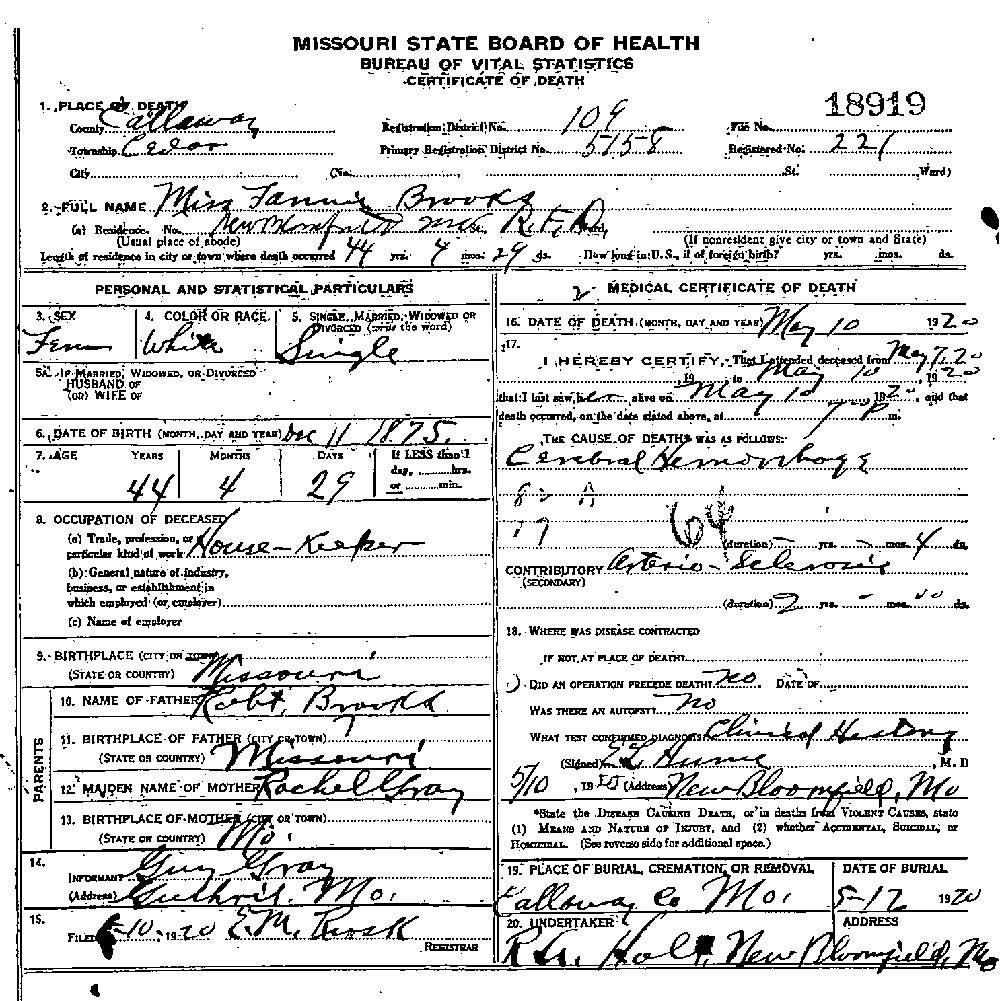 MISSOURI STATE BOARD OF HEALTH
BUREAU OF VITAL STATISTICS
CERTIFICATE OF DEATH
18919
1. PLACE OF DEATH
County Callaway Registration District No. 109 File No.
Township Cedar Primary Registration District No. 5158 Registered No. 221
City (No. St. Ward)
2. FULL NAME Miss Fannie Brooks
(a) Residence. No. New Bloomfield Mo. R.F.D.
(Usual place of abode) (If nonresident give city or town and State)
Length of residence in city or town where death occurred 44 yrs. 4 mos. 29 ds. How long in U.S., if of foreign birth? yrs. mos. ds.
PERSONAL AND STATISTICAL PARTICULARS
3. SEX 4. COLOR OR RACE 5. SINGLE, MARRIED, WIDOWED OR
DIVORCED (write the word)
Fem White Single
5A. IF MARRIED, WIDOWED, OR DIVORCED
HUSBAND OF
(OR) WIFE OF
6. DATE OF BIRTH (MONTH, DAY AND YEAR) Dec 11 1875.
7. AGE YEARS MONTHS DAYS If LESS than 1
day, hrs.
or min.
44 4 29
8. OCCUPATION OF DECEASED
(a) Trade, profession, or
particular kind of work House-Keeper
(b) General nature of industry,
business, or establishment in
which employed (or employer)
(c) Name of employer
9. BIRTHPLACE (CITY OR TOWN)
(STATE OR COUNTRY) Missouri
PARENTS
10. NAME OF FATHER Robt. Brooks
11. BIRTHPLACE OF FATHER (CITY OR TOWN)
(STATE OR COUNTRY) Missouri
12. MAIDEN NAME OF MOTHER Rachel Gray
13. BIRTHPLACE OF MOTHER (CITY OR TOWN)
(STATE OR COUNTRY) Mo.
14. INFORMANT Guy Gray
(Address) Guthrie Mo.
15. FILED 5-10, 1920 E.M.
REGISTRAR
2 MEDICAL CERTIFICATE OF DEATH
16. DATE OF DEATH (MONTH, DAY AND YEAR) May 10 1920
17.
I HEREBY CERTIFY, That I attended deceased from May 7, 20
19 to May 10, 1920
that I last saw her alive on May 10, 1920, and that
death occurred, on the date stated above, at 7 P. m.
THE CAUSE OF DEATH* WAS AS FOLLOWS:
Cerebral Hemorrhage
64
(duration) - yrs. - mos. 4 ds.
CONTRIBUTORY Arterio-Sclerosis
(SECONDARY)
(duration) 2 yrs. - mos. ds.
18. WHERE WAS DISEASE CONTRACTED
IF NOT AT PLACE OF DEATH?
DID AN OPERATION PRECEDE DEATH? No DATE OF
WAS THERE AN AUTOPSY? No
WHAT TEST CONFIRMED DIAGNOSIS? Clinical History
(Signed) Hume, M. D
5/10, 1920 (Address) New Bloomfield, Mo
*State the DISEASE CAUSING DEATH, or in deaths from VIOLENT CAUSES, state
(1) MEANS AND NATURE OF INJURY, and (2) whether ACCIDENTAL, SUICIDAL, or
HOMICIDAL. (See reverse side for additional space.)
19. PLACE OF BURIAL, CREMATION, OR REMOVAL DATE OF BURIAL
Callaway Co Mo. 5-12 1920
20. UNDERTAKER ADDRESS
Holt, New Bloomfield, Mo